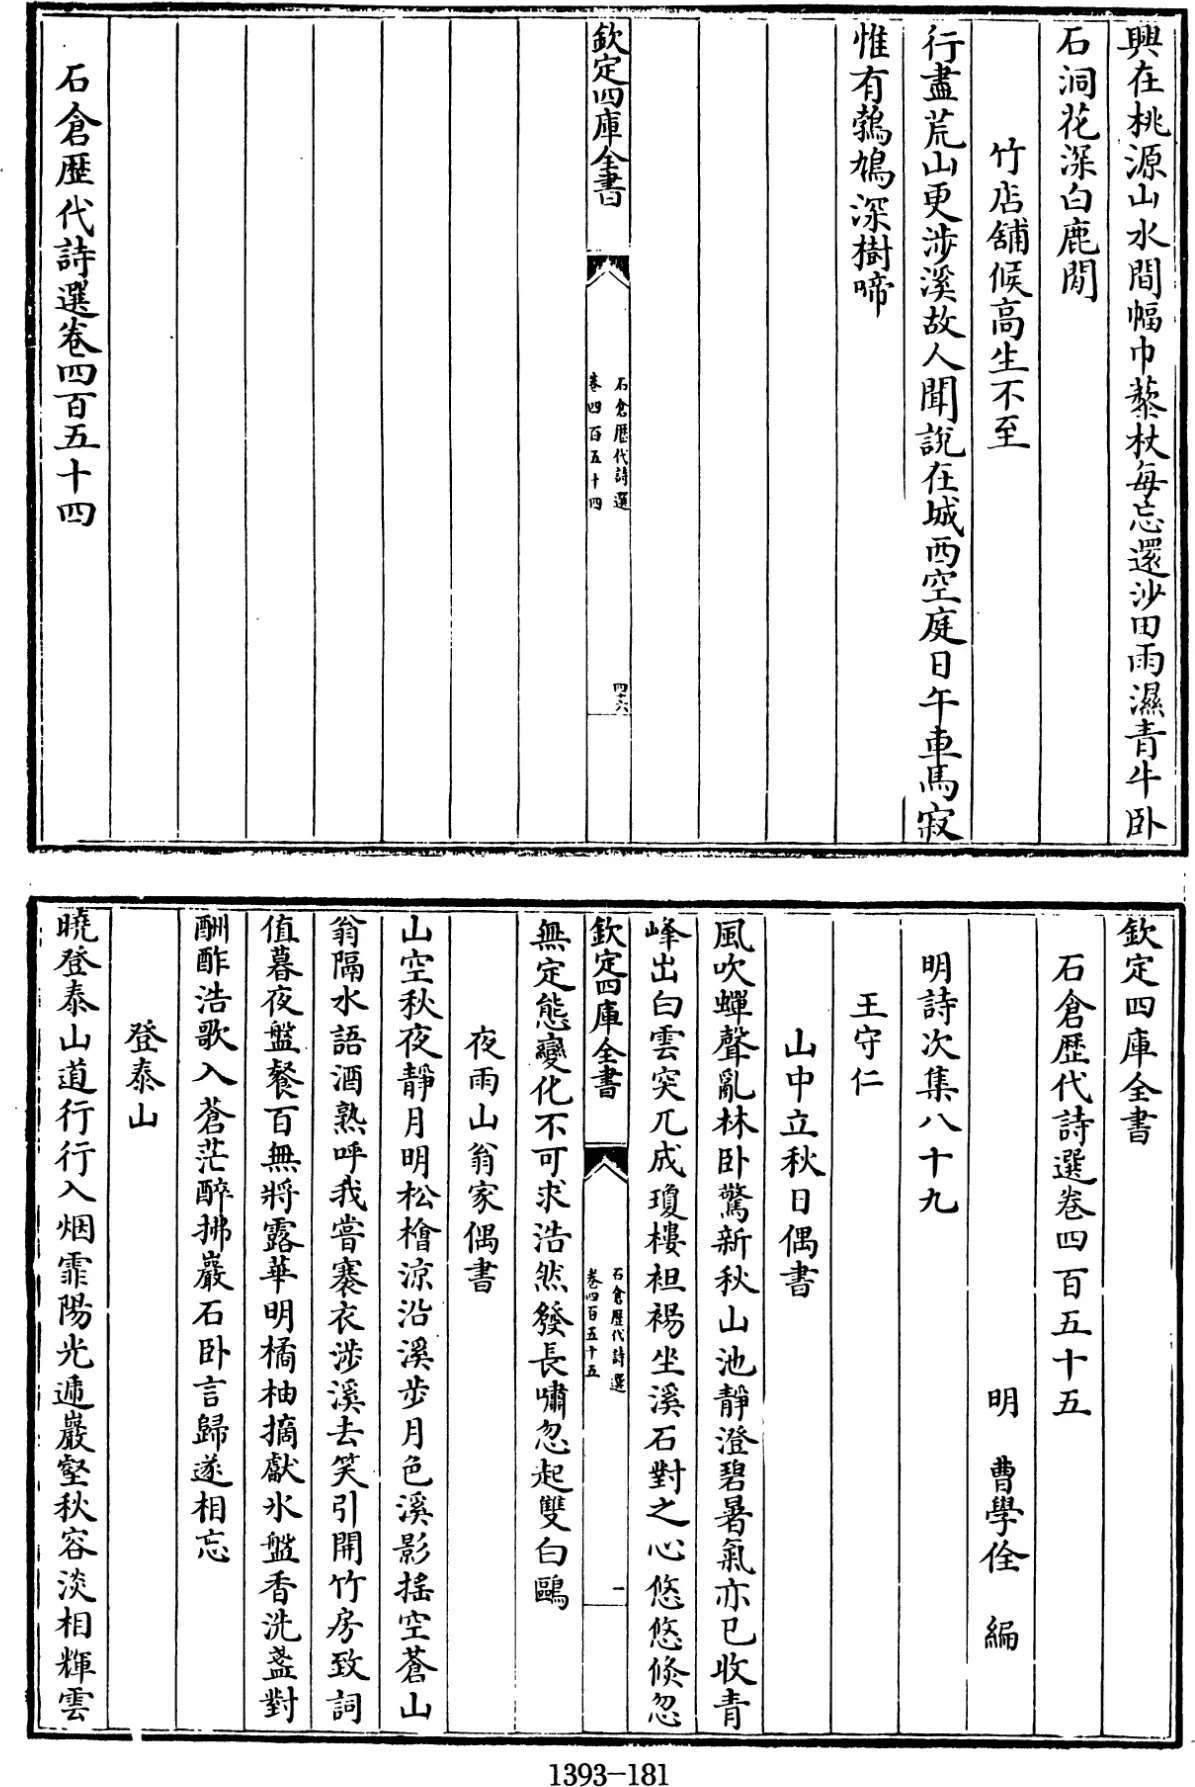 興在桃源山水間幅巾藜杖每忘還沙田雨濕青牛卧
石洞花深白鹿閒
竹店舖候高生不至
行盡荒山更涉溪故人聞説在城西空庭日午車馬寂
惟有鵓鳩深樹啼
欽定四庫全書
石倉歴代詩選
卷四百五十四
四十六
石倉歴代詩選卷四百五十四
欽定四庫全書
石倉歴代詩選卷四百五十五
明 曹學佺 編
明詩次集八十九
王守仁
山中立秋日偶書
風吹蟬聲亂林卧驚新秋山池靜澄碧暑氣亦已收青
峰出白雲突兀成瓊樓袒裼坐溪石對之心悠悠倐忽
欽定四庫全書
石倉歴代詩選
卷四百五十五
一
無定態變化不可求浩然發長嘯忽起雙白鷗
夜雨山翁家偶書
山空秋夜靜月明松檜涼沿溪步月色溪影摇空蒼山
翁隔水語酒熟呼我嘗褰衣涉溪去笑引開竹房致詞
值暮夜盤餐百無將露華明橘柚摘獻氷盤香洗盞對
酬酢浩歌入蒼茫醉拂巖石卧言歸遂相忘
登泰山
曉登泰山道行行入烟霏陽光逓巖壑秋容淡相輝雲
1393-181